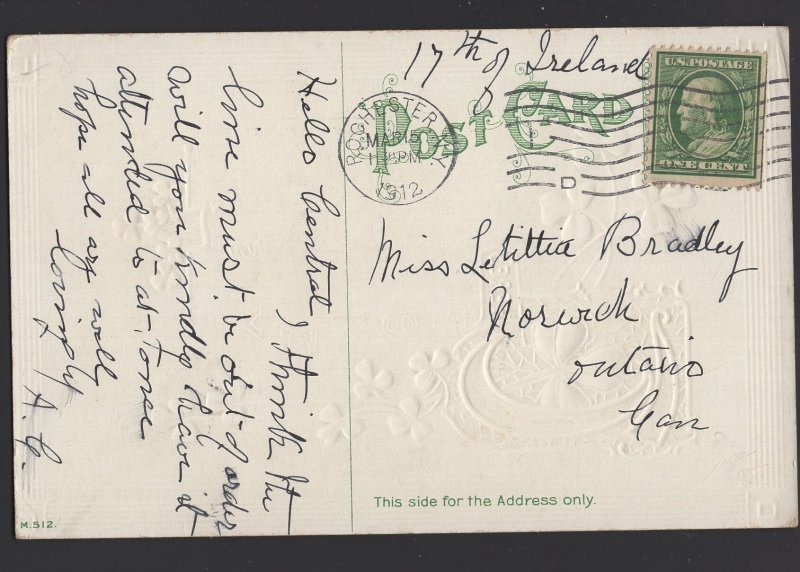 17th of Ireland
POST CARD
U.S. POSTAGE
ONE CENT
ROCHESTER N.Y.
MAR 15
PM
1912
D
Hello Central, I think the
line must be out of order
will you kindly have it
attended to at-Tonce
hope all are well
lovingly
A. G.
Miss Letittia Bradley
Norwich
Ontario
Can
This side for the Address only.
M.512.